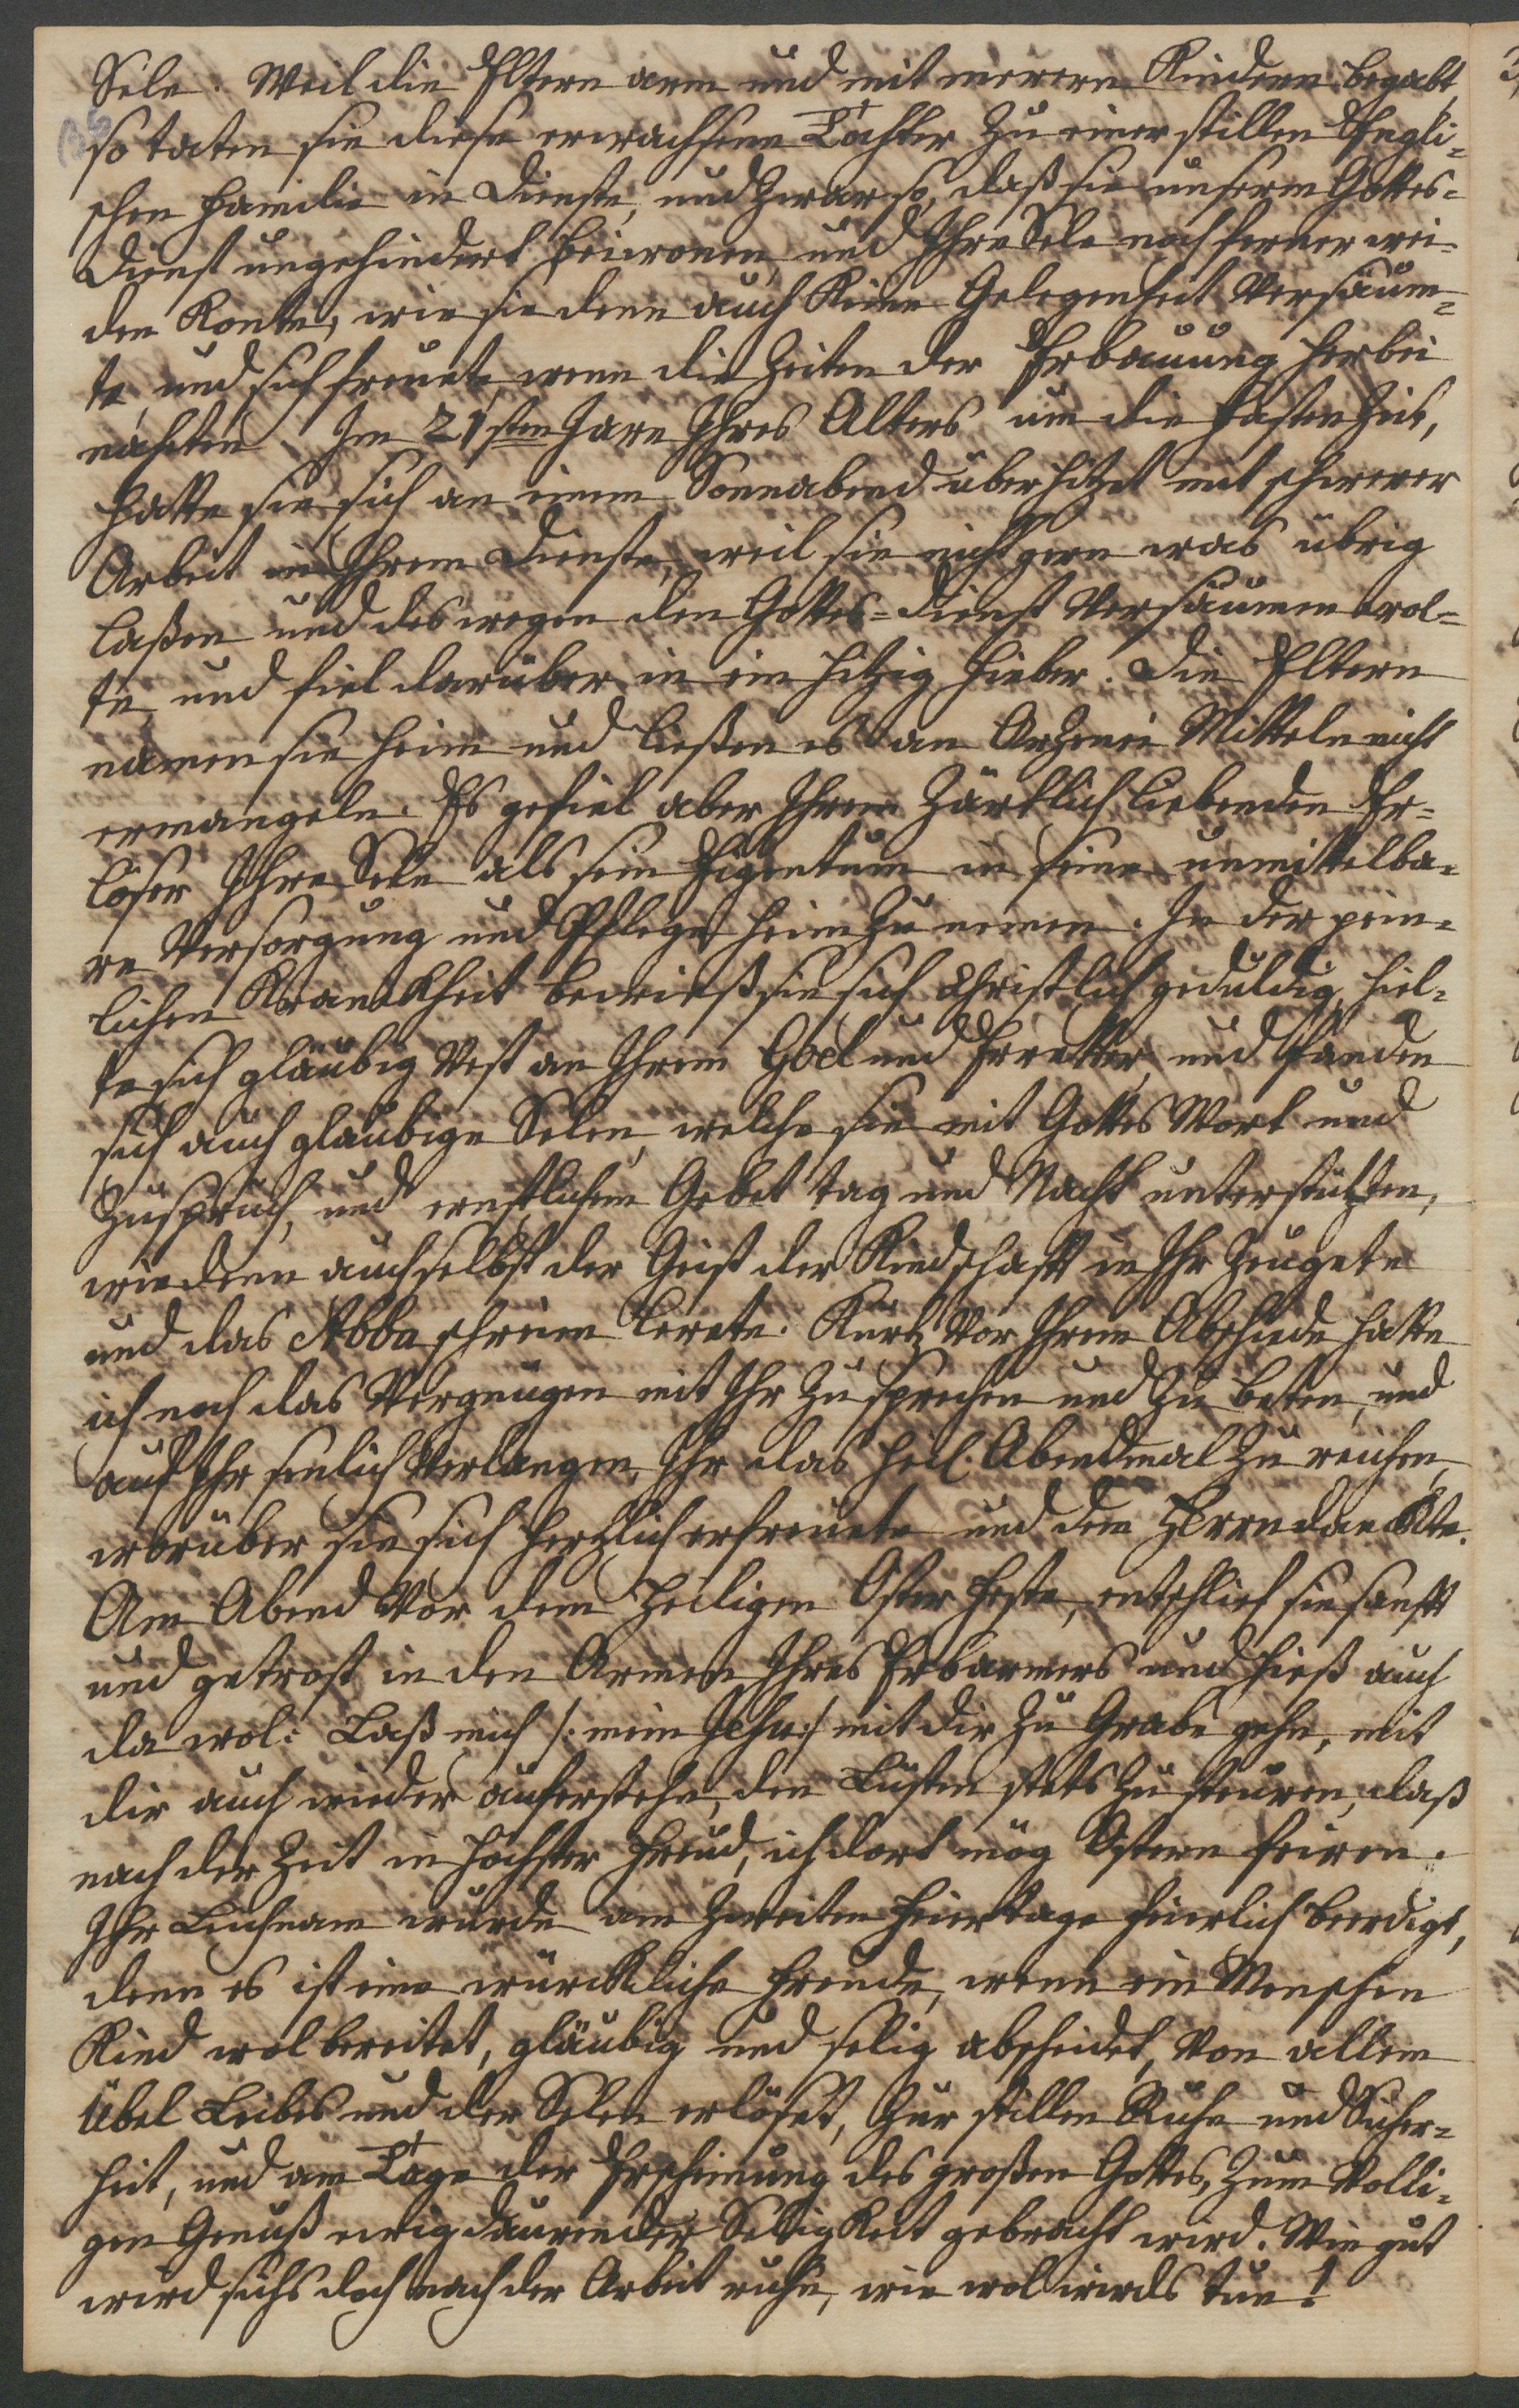 Sele. Weil die Eltern arm und mit merern Kindern begabt,
so taten sie diese erwachsene Tochter zu einer stillen Engli-
schen Familie in Dienste, und zwar so, daß sie unserm Gottes-
Dienst ungehindert beiwonen, und Ihre Sele noch ferner wei-
den Konte, wie sie denn auch Keine Gelegenheit Versäum-
te, und sich freuete, wenn die Zeiten der Erbauung herbei
nahten. Im 21sten Jare Ihres Alters um die Fasten Zeit,
hatte sie sich an einem Sonnabend überhitzet mit schwerer
Arbeit in Ihrem Dienste, weil sie nicht gern was übrig
laßen und deswegen den Gottes-Dienst Versäumen wol-
te, und fiel darüber in ein hitzig Fieber. Die Eltern
namen sie heim und ließen es an Arzenei Mitteln nicht
ermangeln. Es gefiel aber Ihrem Zärtlich liebenden Er-
löser Ihre Sele als sein Eigentum in seine unmittelba-
re Versorgung und Pflege heim zu nemen. In der pein-
lichen Kranckheit bewieß sie sich Christlich geduldig, hiel-
te sich gläubig Vest an Ihrem Goel und Erretter, und fanden
sich auch gläubige Selen, welche sie mit Gottes Wort und
Zuspruch, und ernstlichem Gebet tag und Nacht unterstützten,
wie denn auch selbst der Geist der Kindschaft in Ihr zeugete
und das Abba schreien lerete. Kurtz Vor Ihrem Abschiede hatte
ich noch das Vergnügen mit Ihr zu sprechen und zu beten, und
auf Ihr senlich Verlangen, Ihr das heil. Abendmal zu reichen,
worüber sie sich hertzlich erfreuete und dem Herrn danckte.
Am Abend Vor dem Heiligen Oster Feste, entschlief sie sanft
und getrost in den Armen Ihres Erbarmers und hieß auch
da wol: Laß mich /: mein Jesu :/ mit dir zu Grabe gehn, mit
dir auch wieder auferstehn, den Lüsten stets zu steuren, daß
nach der Zeit in höchster Freud, ich dort mög Ostern feiren.
Ihr Leichnam wurde am zweiten Feiertage feierlich beerdigt,
denn es ist eine würckliche Freude, wenn ein Menschen
Kind wol bereitet, gläubig und selig abscheidet, Von allem
Übel Leibes und der Selen erlöset, zur stillen Ruhe und Sicher-
heit, und am Tage der Erscheinung des großen Gottes, zum Volli-
gen Genuß ewig daurender Seligkeit gebracht wird. Wie gut
wird sichs doch nach der Arbeit ruhn, wie wol wirds tun!